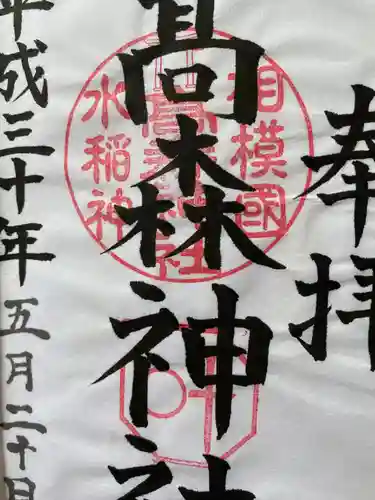 奉拝
髙森神社
平成三十年五月二十日
相模國
水稲神